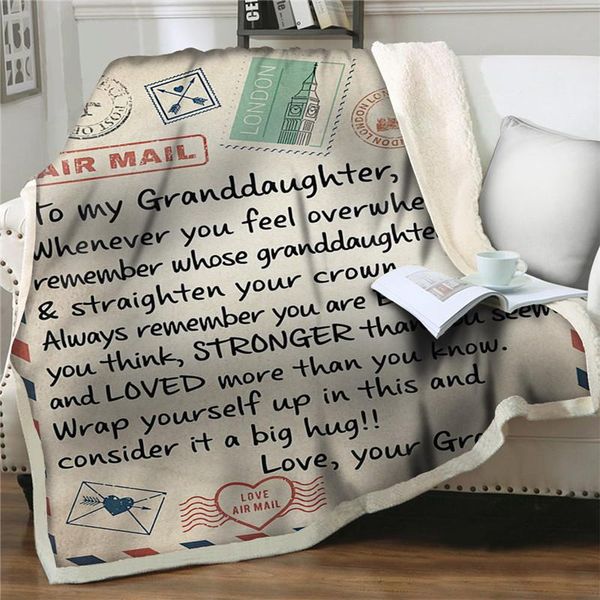 POST OF
LONDON
LONDON
AIR MAIL
To my Granddaughter,
Whenever you feel overwhe
remember whose granddaughte
& straighten your crown
Always remember you are B
you think, STRONGER than you seem
and LOVED more than you know.
Wrap yourself up in this and
consider it a big hug!!
Love, your Gr
LOVE
AIR MAIL